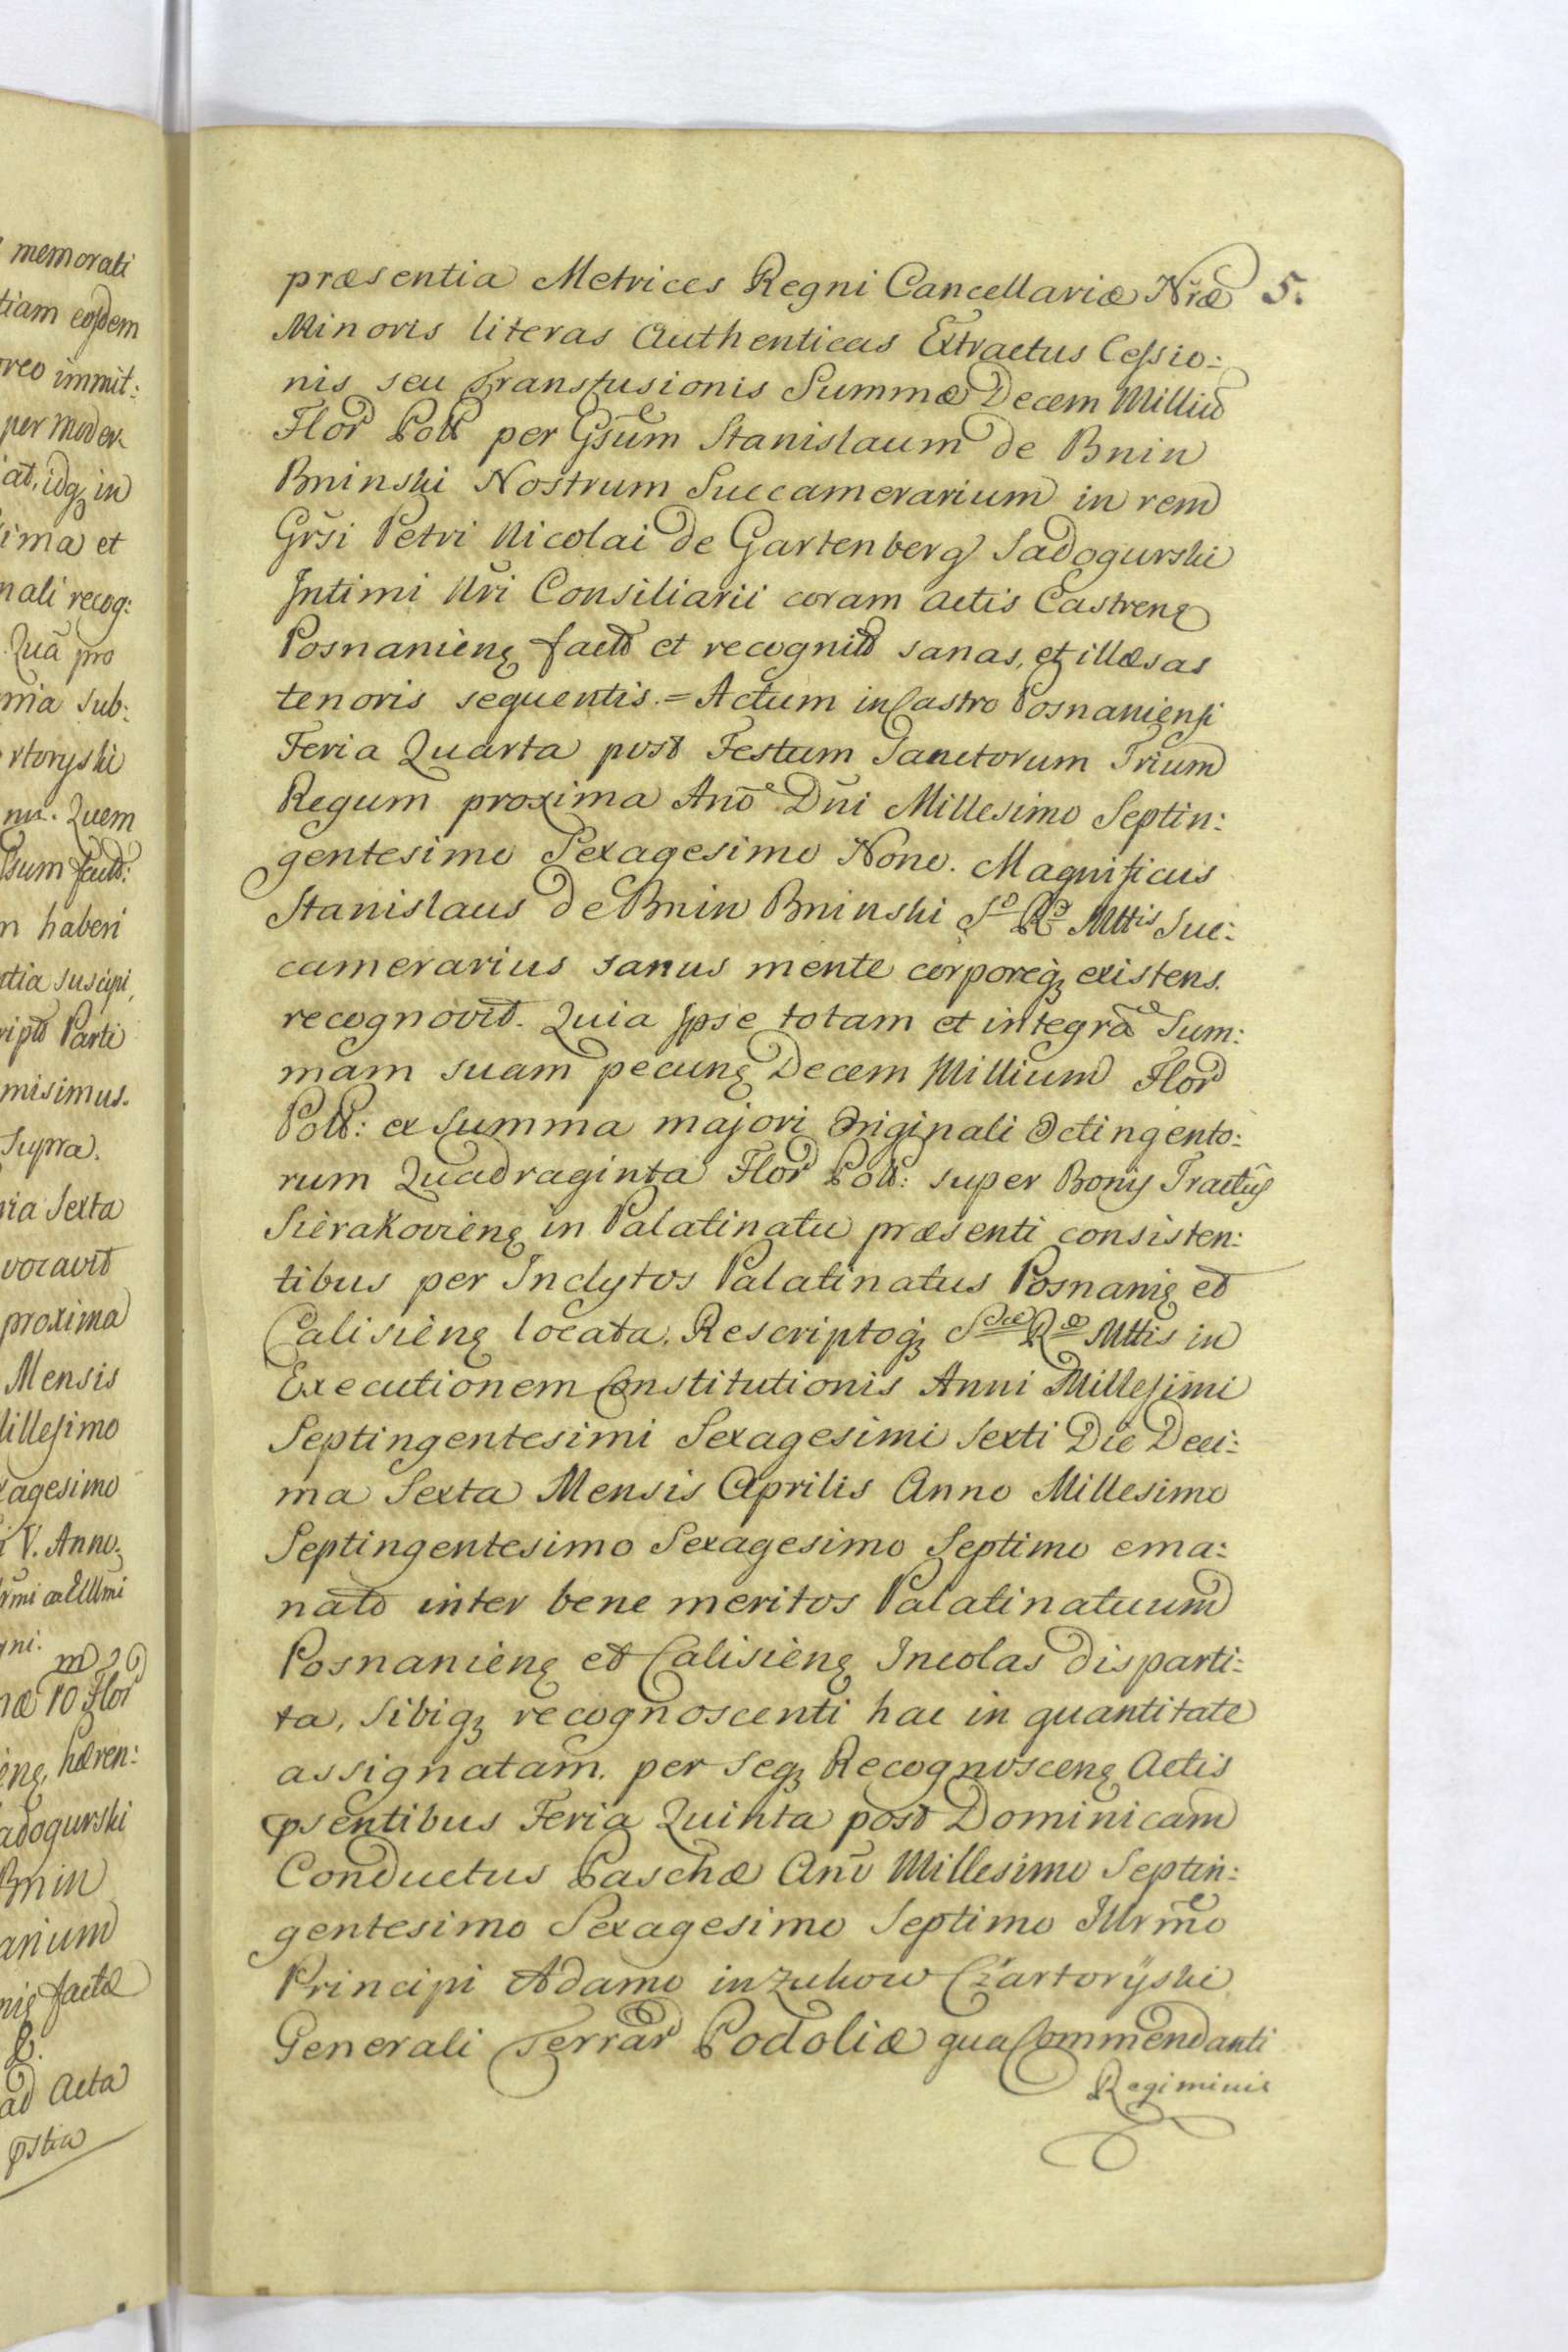 memorati
tiam eosdem
oreo immit:
per moder
at, idqz in
ima et
nali recog:
Quā pro
nia sub:
rtoryski
nu. Quem
sum factd:
n haberi
ntia suscipi,
ripto Parti
misimus.
Supra.
ria Sexta
vocavit
proxima
Mensis
Millesimo
xagesimo
V. Anno
gni.
næ 10 Flor
ienę, hæren:
adogurski
Bnin
arium
nię facta
ad Acta
pstia
præsentia Metrices Regni Cancellariæ Nr̃æ 5.
Minoris literas Authenticas Extractus Cessio:
nis seu Transfusionis Summæ Decem Milliū
Flor Poll per Gsūm Stanislaum de Bnin
Bninski Nostrum Succamerarium in rem
Grsi Petri Nicolai de Gartenberg Sadogurski
Intimi Nr̃i Consiliarii coram Actis Castrenę
Posnanienę facto et recognito sanas, et illæsas
tenoris sequentis. = Actum in Castro Posnaniensi
Feria Quarta post Festum Sanctorum Trium
Regum proxima Anō Dn̄i Millesimo Septin:
gentesimo Sexagesimo Nono. Magnificus
Stanislaus de Bnin Bninski S R Mttis Suc:
camerarius sanus mente corporeqz existens.
recognovit. Quia Ipse totam et integrā Sum:
mam suam pecunę Decem Millium Flor
Poll: ex Summa majori Originali Octingento:
rum Quadraginta Flor Poll: super Bonis Tractus
Sierakovienę in Palatinatu præsenti consisten:
tibus per Inclytos Palatinatus Posnanię et
Calisienę locata. Rescriptoqz Sæ Ræ Mttis in
Executionem Constitutionis Anni Millesimi
Septingentesimi Sexagesimi Sexti Die Deci:
ma Sexta Mensis Aprilis Anno Millesimo
Septingentesimo Sexagesimo Septimo ema:
nato inter bene meritos Palatinatuum
Posnanienę et Calisienę Incolas disparti:
ta, Sibiqz recognoscenti hac in quantitate
assignatam. per Seqz Recognoscenę Actis
psentibus Feria Quinta post Dominicam
Conductus Paschæ Anō Millesimo Septin:
gentesimo Sexagesimo Septimo Illrm̄o
Principi Adamo in Zukow Czartoryski
Generali Terrar Podoliæ qua Commendanti
Regiminis